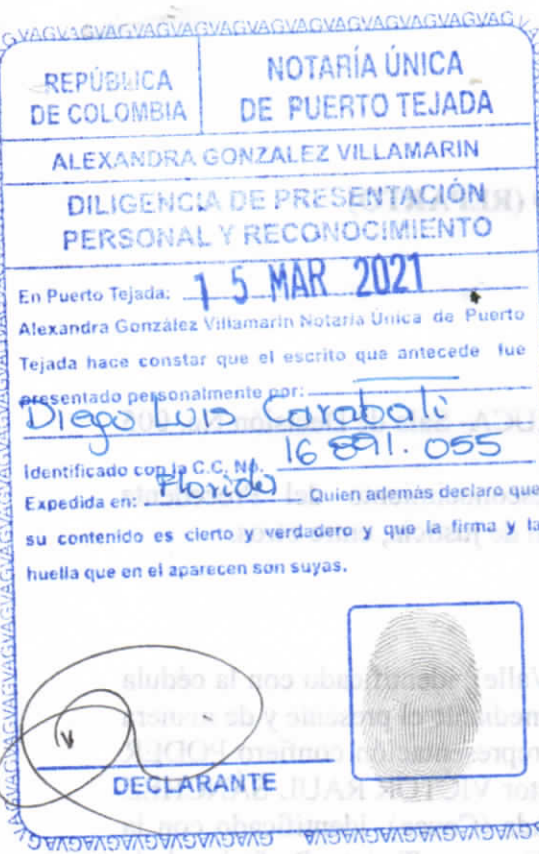 REPÚBLICA
DE COLOMBIA
NOTARÍA ÚNICA
DE PUERTO TEJADA
ALEXANDRA GONZALEZ VILLAMARIN
DILIGENCIA DE PRESENTACIÓN
PERSONAL Y RECONOCIMIENTO
En Puerto Tejada: 15 MAR 2021
Alexandra González Villamarín Notaria Única de Puerto
Tejada hace constar que el escrito que antecede fue
presentado personalmente por:
Diego Luis Carabalí
Identificado con la C.C. No. 16 891.055
Expedida en: Florida Quien además declaro que
su contenido es cierto y verdadero y que la firma y la
huella que en el aparecen son suyas.
DECLARANTE